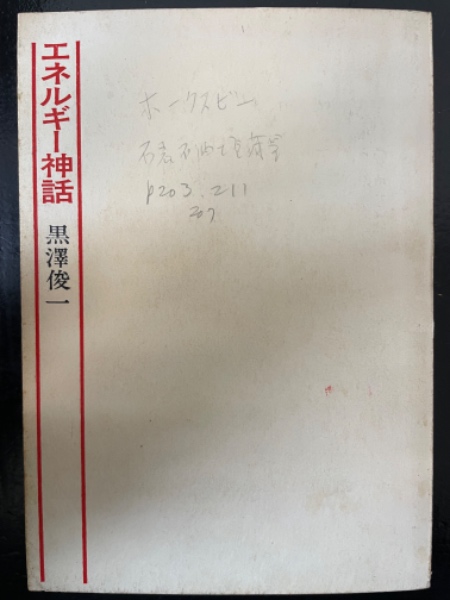 エネルギー神話
黒澤俊一
ホークスビル
石炭石油
p203.211
207